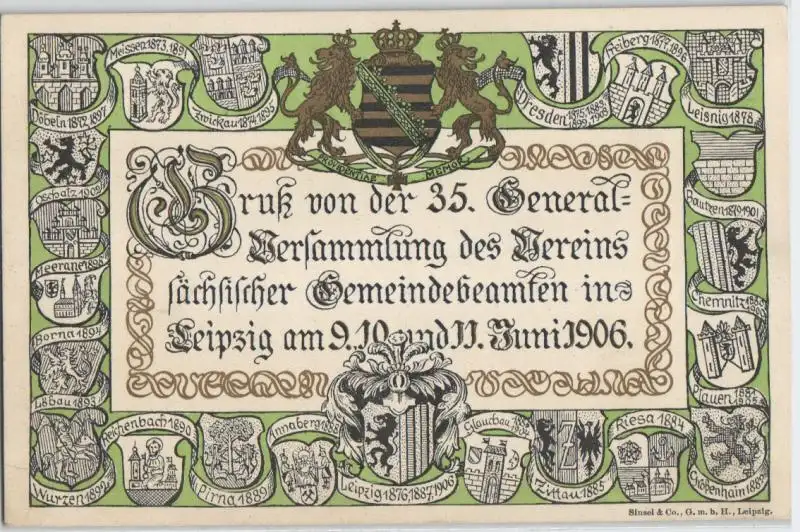 Meissen 1873, 1891
Zwickau 1874, 1895
Dresden 1875, 1883,
1899, 1903
Freiberg 1877, 1896
Leisnig 1878
Döbeln 1872, 1897
PROVIDENTIAE MEMOR
Oschatz 1900
Bautzen 1879, 1901
Meerane 1898
Chemnitz
Borna 1894
Plauen
Löbau 1893
Gruß von der 35. General-
Versammlung des Vereins
sächsischer Gemeindebeamten in
Leipzig am 9. 10. und 11. Juni 1906.
Wurzen 1892
Reichenbach 1890
Pirna 1889
Annaberg
Leipzig 1876, 1887, 1906
Glauchau
Zittau 1885
Riesa 1884
Großenhain
Sinsel & Co., G. m. b. H., Leipzig.